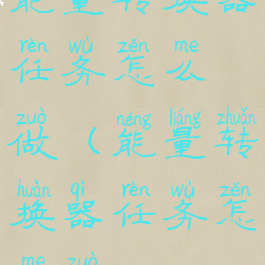 能量转换器
rèn wù zěn me
任务怎么
zuò néng liáng zhuǎn
做（能量转
huàn qì rèn wù zěn
换器任务怎
me zuò